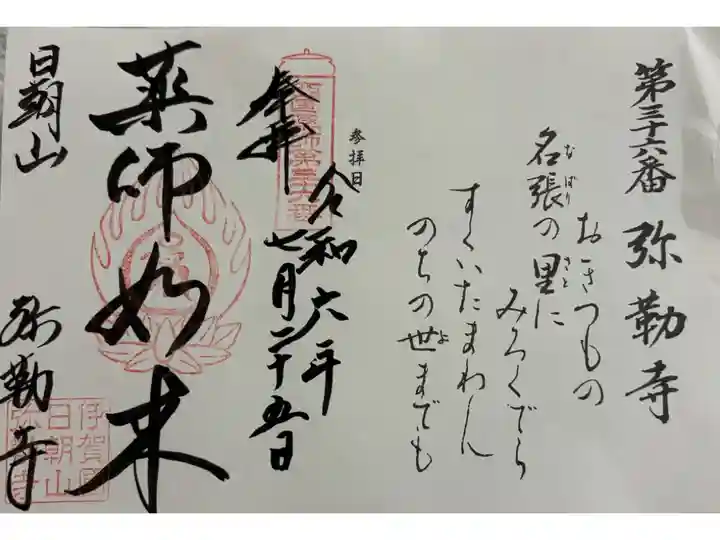 第三十六番 弥勒寺
おきつもの
名張の里に
なばり
さと
みろくでら
すくいたまわん
のちの世までも
よ
参拝日
令和六年
七月二十五日
奉拝
西国薬師第三十六番
薬師如来
日朝山
弥勒寺
伊賀國
日朝山
弥勒寺